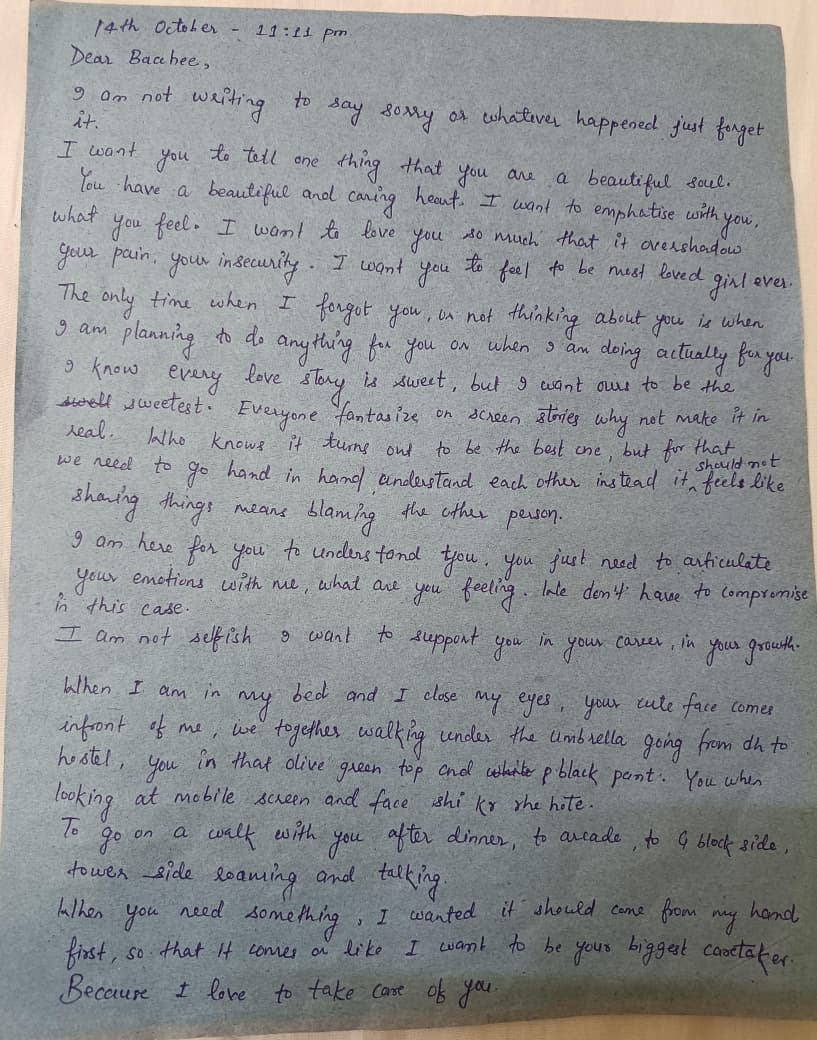 14th October - 11:11 pm
Dear Bacchee,
I am not writing to say sorry or whatever happened just forget
it.
I want you to tell one thing that you are a beautiful soul.
You have a beautiful and caring heart. I want to emphatise with you,
what you feel. I want to love you so much that it overshadow
your pain, your insecurity. I want you to feel to be most loved girl ever.
The only time when I forgot you, or not thinking about you is when
I am planning to do anything for you or when I am doing actually for you.
I know every love story is sweet, but I want ours to be the
swell sweetest. Everyone fantasize on screen stories why not make it in
real. Who knows it turns out to be the best one, but for that
we need to go hand in hand, understand each other instead it should not feels like
sharing things means blaming the other person.
I am here for you to understand you, you just need to articulate
your emotions with me, what are you feeling. We don't have to compromise
in this case.
I am not selfish I want to support you in your career, in your growth.
When I am in my bed and I close my eyes, your cute face comes
infront of me, we together walking under the umbrella going from dh to
hostel, you in that olive green top and white p black pant. You when
looking at mobile screen and face shi kr rhe hote.
To go on a walk with you after dinner, to arcade, to G block side,
tower side roaming and talking.
When you need something, I wanted it should come from my hand
first, so that It comes or like I want to be your biggest caretaker.
Because I love to take care of you.